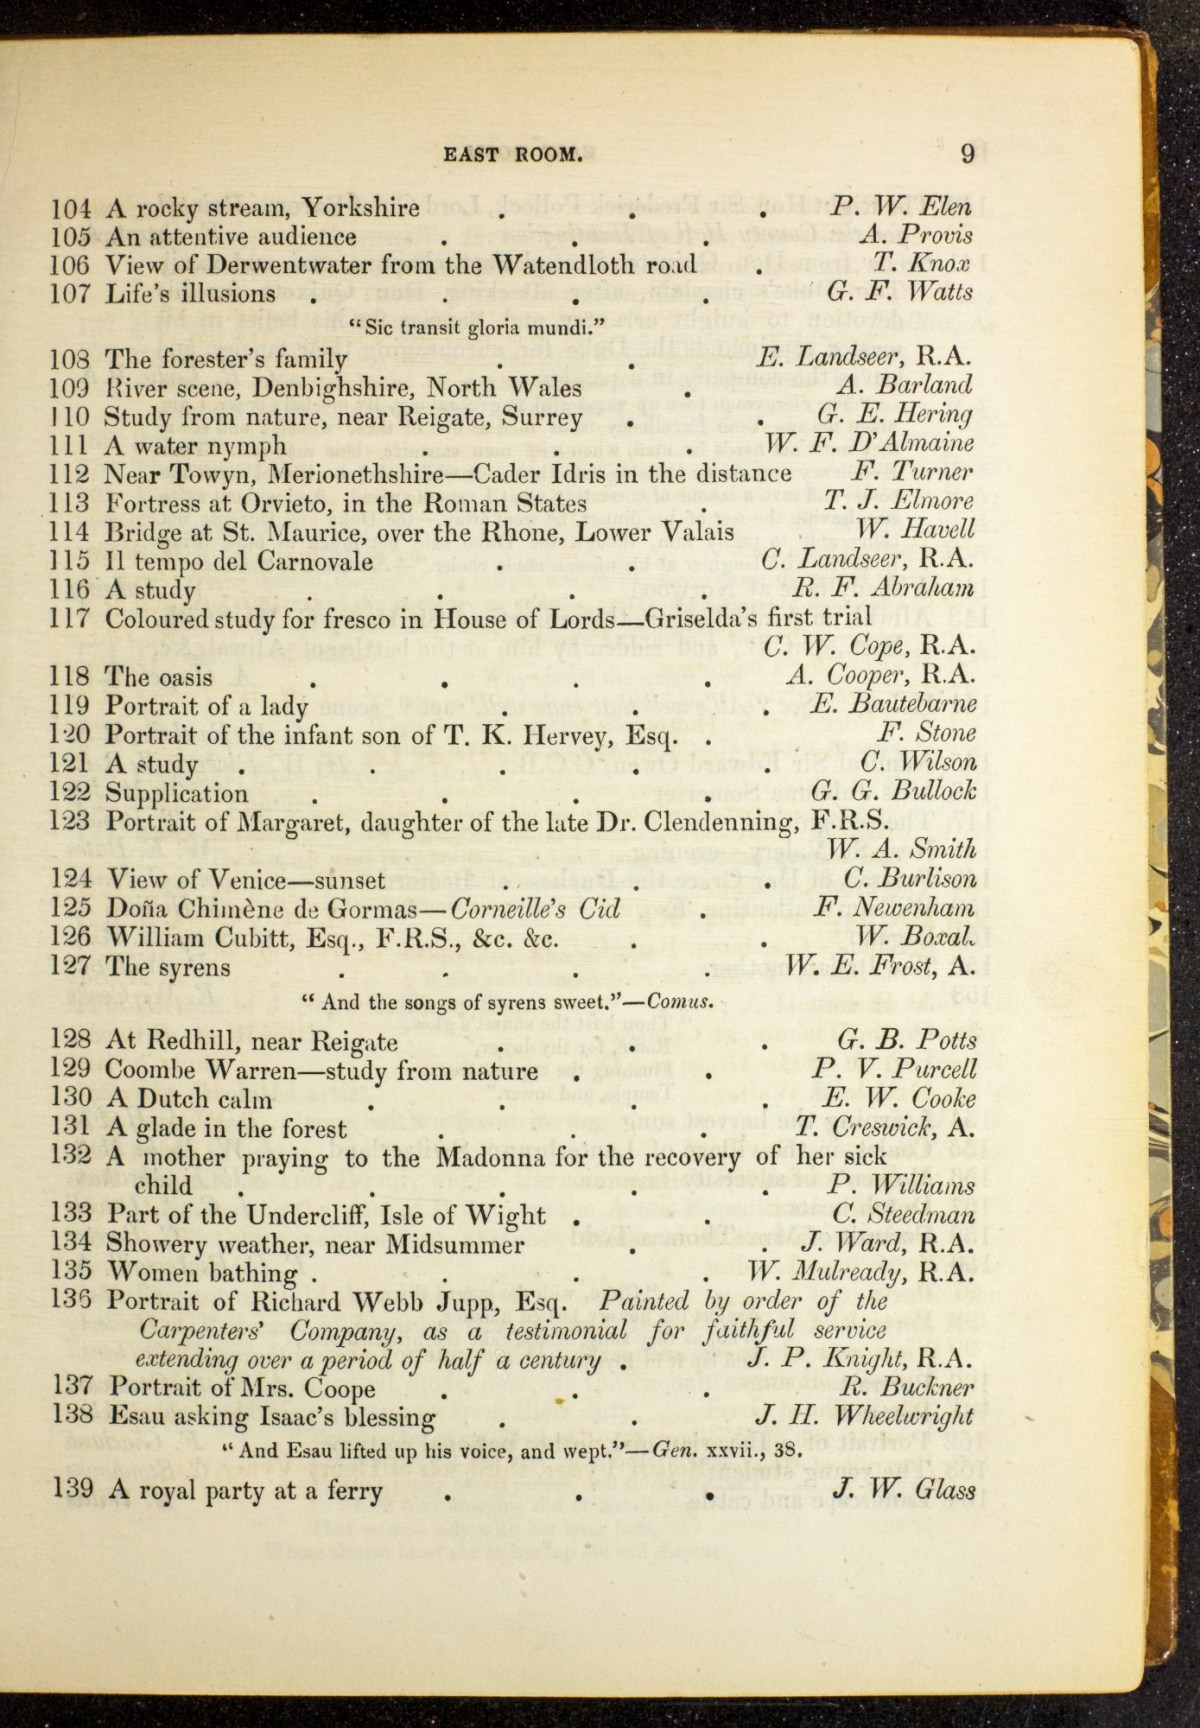 EAST ROOM. 9
104 A rocky stream, Yorkshire . . . P. W. Elen
105 An attentive audience . . . A. Provis
106 View of Derwentwater from the Watendloth road . T. Knox
107 Life's illusions . . . . G. F. Watts
“Sic transit gloria mundi.”
108 The forester's family . . E. Landseer, R.A.
109 River scene, Denbighshire, North Wales . A. Barland
110 Study from nature, near Reigate, Surrey . . G. E. Hering
111 A water nymph . . . W. F. D'Almaine
112 Near Towyn, Merionethshire—Cader Idris in the distance F. Turner
113 Fortress at Orvieto, in the Roman States . T. J. Elmore
114 Bridge at St. Maurice, over the Rhone, Lower Valais . W. Havell
115 Il tempo del Carnovale . . C. Landseer, R.A.
116 A study . . . . R. F. Abraham
117 Coloured study for fresco in House of Lords—Griselda's first trial
C. W. Cope, R.A.
118 The oasis . . . . A. Cooper, R.A.
119 Portrait of a lady . . . E. Bautebarne
120 Portrait of the infant son of T. K. Hervey, Esq. . F. Stone
121 A study . . . . . C. Wilson
122 Supplication . . . . G. G. Bullock
123 Portrait of Margaret, daughter of the late Dr. Clendenning, F.R.S.
W. A. Smith
124 View of Venice—sunset . . . C. Burlison
125 Doña Chimène de Gormas—Corneille's Cid . F. Newenham
126 William Cubitt, Esq., F.R.S., &c. &c. . . W. Boxal
127 The syrens . . . . W. E. Frost, A.
“And the songs of syrens sweet.”—Comus.
128 At Redhill, near Reigate . . . G. B. Potts
129 Coombe Warren—study from nature . . P. V. Purcell
130 A Dutch calm . . . . E. W. Cooke
131 A glade in the forest . . . T. Creswick, A.
132 A mother praying to the Madonna for the recovery of her sick
child . . . . . P. Williams
133 Part of the Undercliff, Isle of Wight . . C. Steedman
134 Showery weather, near Midsummer . . J. Ward, R.A.
135 Women bathing . . . . W. Mulready, R.A.
136 Portrait of Richard Webb Jupp, Esq. Painted by order of the
Carpenters' Company, as a testimonial for faithful service
extending over a period of half a century . J. P. Knight, R.A.
137 Portrait of Mrs. Coope . . . R. Buckner
138 Esau asking Isaac's blessing . . J. H. Wheelwright
“And Esau lifted up his voice, and wept.”—Gen. xxvii., 38.
139 A royal party at a ferry . . . J. W. Glass